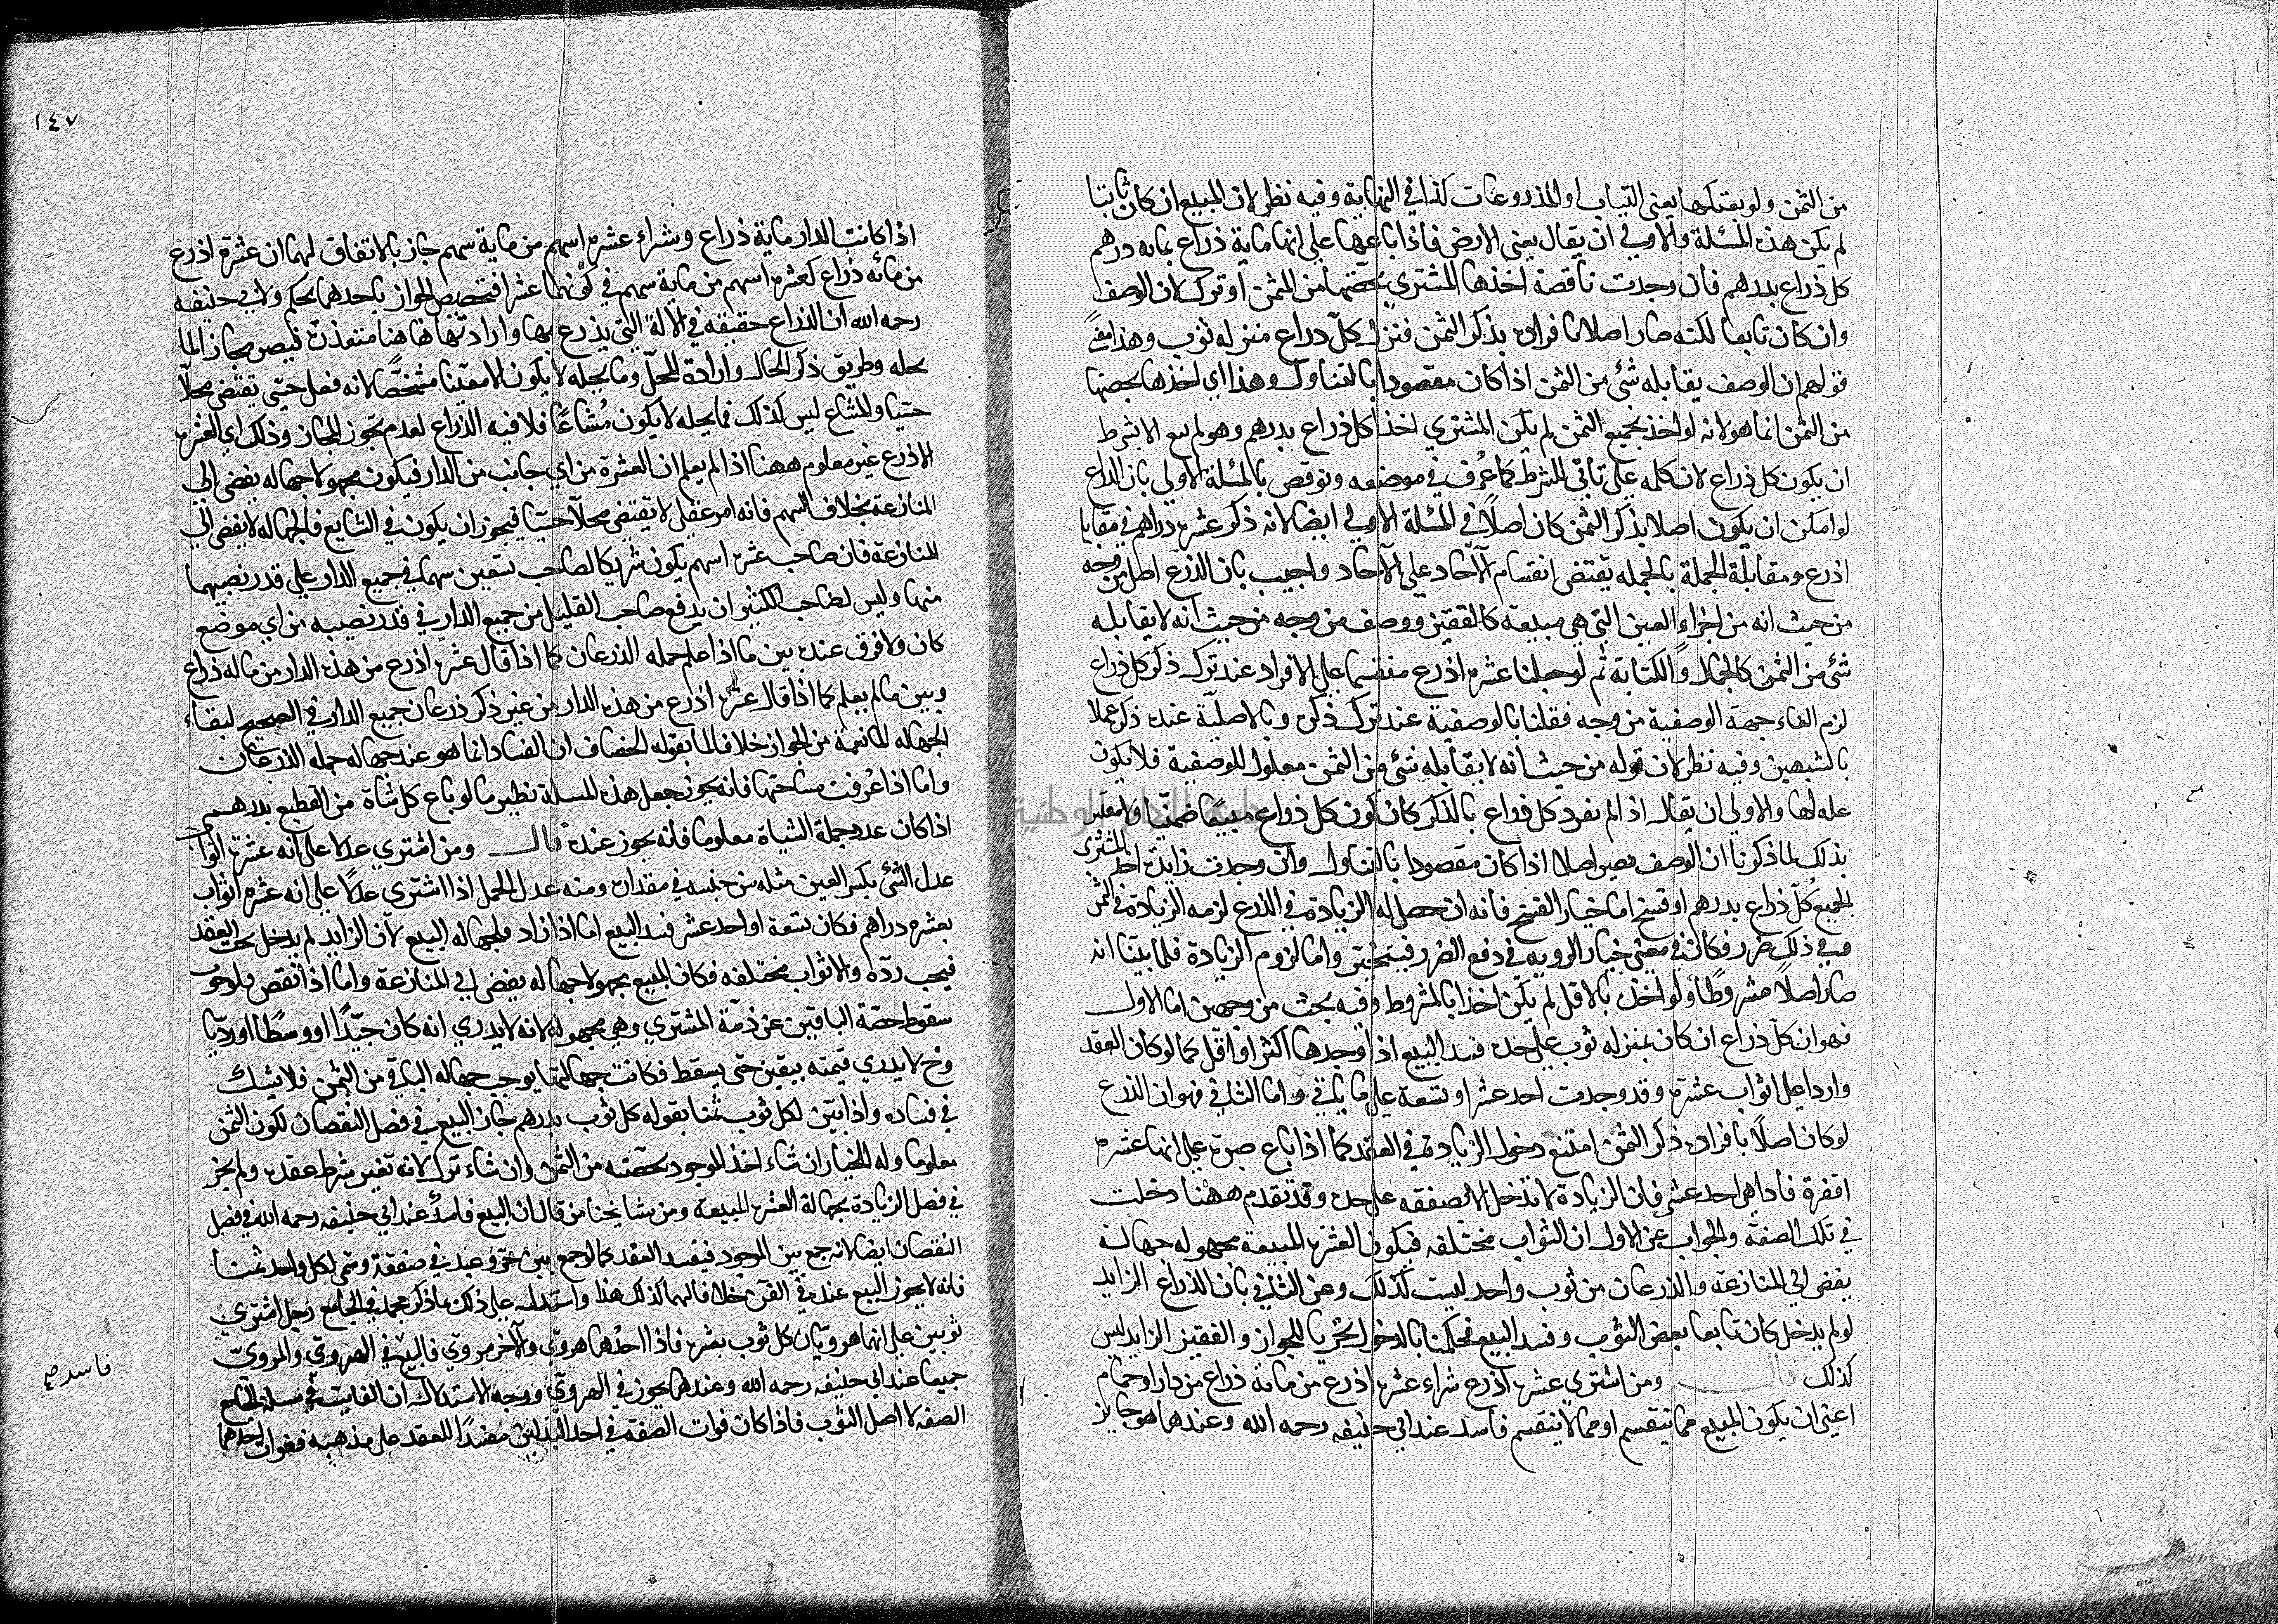 من الثمن ولو بعتكها يعني الثياب او المذروعات كذا في النهاية وفيه نظر لان المبيع ان كان ثيابا
لم يكن هذه المسئلة والاولى ان يقال يعني الارض فاذا باعها على انها ماية ذراع بمايه درهم
كل ذراع بدرهم فان وجدت ناقصة اخذها المشتري بحصتها من الثمن او ترك لان الوصف
وان كان تابعا لكنه صار اصلا بافراده بذكر الثمن فننزل كل دراع منزله ثوب وهذا معنى
قولهم ان الوصف يقابله شئ من الثمن اذا كان مقصودا بالتناول وهذا اي اخذها بحصتها
من الثمن انما هو لانه لو اخذ بجميع الثمن لم يكن المشتري اخذا كل ذراع بدرهم وهو لم يبع الا بشرط
ان يكون كل ذراع لان كلمه على تاتي للشرط كما عُرف في موضعه ونوقض بالمسئلة الاولى بان الذراع
لو امكن ان يكون اصلا بذكر الثمن كان اصلًا في المسئلة الاولى ايضا لانه ذكر عشره دراهم في مقابلة
اذرع ومقابلة الجملة بالجمله يقتضى انقسام الآحاد على الآحاد واجيب بان الذرع اصل من وجه
من حيث انه من اجزاء العين التي هي مبيعة كالقفيز ووصف من وجه من حيث انه لا يقابله
شئ من الثمن كالجمال والكتابة ثم لو جعلنا عشره اذرع منقسما على الافراد عند ترك ذكر كل ذراع
لزم الغاء جهة الوصفية من وجه فقلنا بالوصفية عند ترك ذكره وبالاصلية عند ذكره عملا
بالشبهين وفيه نظر لان قوله من حيث انه لا يقابله شئ من الثمن معلول للوصفية فلا يكون
عله لها والاولى ان يقال اذ لم يفرد كل ذراع بالذكر كان كون كل ذراع مبيعًا ضمنيّا ولا معتبر
بذلك لما ذكرنا ان الوصف يصير اصلا اذا كان مقصودا بالتناول وان وجدت زايدة اخذ المشتري
الجميع كل ذراع بدرهم او فسخ اما خيار الفسخ فانه ان حصل له الزيادة في الذرع لزمه الزيادة في الثمن
وفي ذلك ضرر فكان في معنى خيار الرويه في دفع الضرر فيتخير واما لزوم الزيادة فلما بيّنا انه
صار اصلًا مشروطًا ولو اخذ بالاقل لم يكن اخذا بالمشروط وفيه بحث من وجهين اما الاول
فهو ان كل ذراع ان كان بمنزله ثوب على حده فسد البيع اذا وجدها اكثر او اقل كما لو كان العقد
واردا على اثواب عشرة وقد وجدت احد عشر او تسعة على ما ياتي واما الثاني فهو ان الذرع
لو كان اصلًا بافراد ذكر الثمن امتنع دخول الزيادة في العقد كما اذا باع صبرة على انها عشره
اقفزة فاذا هي احد عشر فان الزيادة لا تدخل الا بصفقه على حده وقد تقدم ههنا دخلت
في تلك الصفة والجواب عن الاول ان الثواب مختلفه فيكون العشره المبيعة مجهوله جهالة
يفضى الى المنازعة والذرعان من ثوب واحد ليست كذلك وعن الثاني بان الذراع الزايد
لو لم يدخل كان تابعا بعض الثوب وفسد البيع فحكمنا بالدخول تحريا للجواز والقفيز الزايد ليس
كذلك قال ومن اشترى عشره اذرع شراء عشره اذرع من مائة ذراع من دار او حمام
اعني ان يكون المبيع مما ينقسم او مما لا ينقسم فاسد عند ابي حنيفه رحمه الله وعندهما هو جايز
١٤٧
اذا كانت الدار ماية ذراع وشراء عشره اسهم من ماية سهم جاز بالاتفاق لهما ان عشرة اذرع
من مائه ذراع كعشره اسهم من ماية سهم في كونهما عشرا فتخصيص الجواز باحدهما تحكم ولابي حنيفه
رحمه الله ان الذراع حقيقه في الالة التي يذرع بها وارادتها هاهنا متعذرة فيصير مجاز الما
يحله وطريق ذكر الحال وارادة المحل وما يحله لا يكون الا معيّنا مشخصًا لانه فعل حتى يقتضى محلا
حسيا والمشاع ليس كذلك فما يحله لا يكون مُشاعًا فلا فيه الذراع لعدم مجوز المجاز وذلك اي العشره
الاذرع غير معلوم ههنا اذا لم يعلم ان العشرة من اي جانب من الدار فيكون مجهولا جهاله يفضى الى
المنازعة بخلاف السهم فانه امر عقلي لا يقتضى محلًا حسيّا فيجوز ان يكون في الشايع فالجهاله لا يفضى الى
المنازعة فان صاحب عشره اسهم يكون شريكا لصاحب تسعين سهما في جميع الدار على قدر نصيبهما
منها وليس لصاحب الكثير ان يدفع صاحب القليل من جميع الدار في قدر نصيبه من اي موضع
كان ولا فرق عنده بين ما اذا علم جمله الذرعان كما اذا قال عشره اذرع من هذه الدار من مائه ذراع
وبين ما لم يعلم كما اذا قال عشره اذرع من هذه الدار من غير ذكر ذرعان جميع الدار في الصحيح لبقاء
الجهاله المانعة من الجواز خلافا لما يقوله الخصاف ان الفساد انما هو عند جهاله جمله الذرعان
واما اذا عُرفت مساحتها فانه يجوز جعل هذه المسلة نظير ما لو باع كل شاة من القطيع بدرهم
اذا كان عدد جملة الشياة معلوما فانه يجوز عنده قال ومن اشترى عدلا على انه عشرة اثواب
عدل الشئ بكسر العين مثله من جنسه في مقداره ومنه عدل الحمل اذا اشترى عدلًا على انه عشره اثواب
بعشره دراهم فكان تسعة او احد عشر فسد البيع اما اذا زاد فلجهاله المبيع لان الزايد لم يدخل تحت العقد
فيجب ردّه والاثواب مختلفه فكان المبيع مجهولا جهاله يفضى الى المنازعة واما اذا نقص فلوجوب
سقوط حصّة الباقين عن ذمّة المشتري وهي مجهوله لانه لا يدري انه كان جيّدًا او وسطًا او رديّا
وح لا يدري قيمته بيقين حتى يسقط فكانت جهالتها يوجب جهاله الباقي من الثمن فلا يشك
في فساده واذا بيّن لكل ثوب ثمنا بقوله كل ثوب بدرهم جاز البيع في فصل النقصان لكون الثمن
معلوما وله الخيار ان شاء اخذ الموجود بحصّته من الثمن وان شاء ترك لانه تغير شرط عقده ولم يجز
في فصل الزيادة بجهالة العشره المبيعة ومن مشايخنا من قال ان البيع فاسدٌ عند ابي حنيفه رحمه الله في فصل
النقصان ايضا لانه جمع بين الموجود فيفسد العقد كما لو جمع بين حرّ وعبد في صفقة وسمى لكل واحد ثمنا
فانه لا يجوز البيع عنده في القن خلافا لهما كذلك هذا واستدل على ذلك بما ذكر محمد في الجامع رجل اشترى
ثوبين على انهما هرويّان كل ثوب بعشره فاذا احدهما هروي والآخر مروي فالبيع في الهروي والمرويّ
جميعا عند ابي حنيفه رحمه الله وعندهما يجوز في الهرويّ ووجه الاستدلال ان الفايت في مسلة الجامع
الصفه لا اصل الثوب فاذا كان فوات الصفه في احد البدلين مفسدًا للعقد على مذهبه ففوات احدهما
فاسد صح